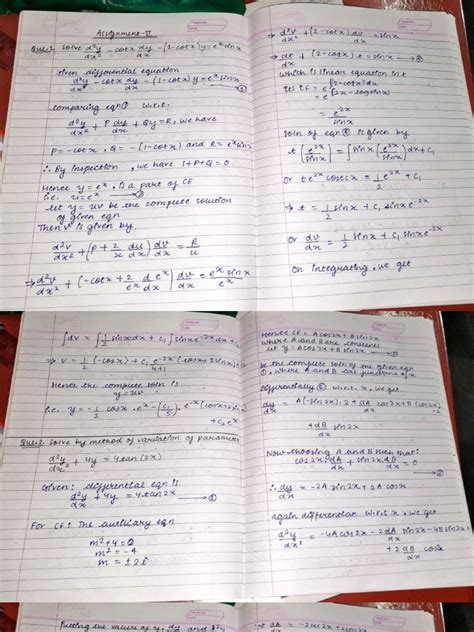 Assignment-II
Ques.1 Solve d²y/dx² - cotx dy/dx - (1-cotx)y = eˣ sinx
Given differential equation
d²y/dx² - cotx dy/dx - (1-cotx)y = eˣ sinx —①
comparing eqn① w.r.t.
d²y/dx² + P dy/dx + Qy = R, we have
P = -cotx, Q = -(1-cotx) and R = eˣ sinx
∴ By inspection, we have 1+P+Q=0
Hence y = eˣ, is a part of CF
i.e. u = eˣ —②
let y = uv be the complete solution
of given eqn
Then v is given by
d²v/dx² + (P + 2/u du/dx) dv/dx = R/u
⇒ d²v/dx² + (-cotx + 2/eˣ d eˣ/dx) dv/dx = eˣ sinx/eˣ
⇒ d²v/dx² + (2-cotx) dv/dx = sinx
⇒ dt/dx + (2-cotx) t = sinx —④
which is linear equation in t
its I.F = e^∫(2-cotx)dx
= e^(2x-logsinx)
= e²ˣ/sinx
Soln of eqn ④ is given by
t[e²ˣ/sinx] = ∫sinx[e²ˣ/sinx]dx + C₁
Or t e²ˣ cosecx = 1/2 e²ˣ + C₁
⇒ t = 1/2 sinx + C₁ sinx e⁻²ˣ
Or dv/dx = 1/2 sinx + C₁ sinx e⁻²ˣ
On integrating, we get
∫dv = ∫1/2 sinx dx + C₁ ∫sinx e⁻²ˣ dx +
⇒ v = 1/2 (-cosx) + C₁ e⁻²ˣ/4+1 (cosx + 2sinx) +
Hence the complete soln is
y = uv
i.e. y = -1/2 cosx . eˣ - (C₁/5) e⁻ˣ (cosx + 2sinx)
+ C₂ eˣ
Ques.2 Solve by method of variation of parameter
d²y/dx² + 4y = 4tan(2x)
Given: differential eqn is
d²y/dx² + 4y = 4tan2x —①
For CF! The auxiliary eqn
m²+4=0
m² = -4
m = ±2i
Hence CF = Acos2x + Bsin2x
where A and B are constants
let y = Acos2x + Bsin2x
be the complete soln of the given eqn
①, where A and B are functions of x
differentially ② w.r.t. x, we get
dy/dx = A(-sin2x).2 + dA/dx cos2x + B(cos2x).2
+ dB/dx sin2x
Now choosing A and B then that:
cos2x dA/dx + sin2x dB/dx = 0
∴ dy/dx = -2A sin2x + 2A cosx
again differentiate w.r.t x, we get
d²y/dx² = -4Acos2x - 2dA/dx sin2x - 4B sin2x
+ 2 dB/dx cos2x
Putting the values of y, dy/dx and
⇒ dA/dx =